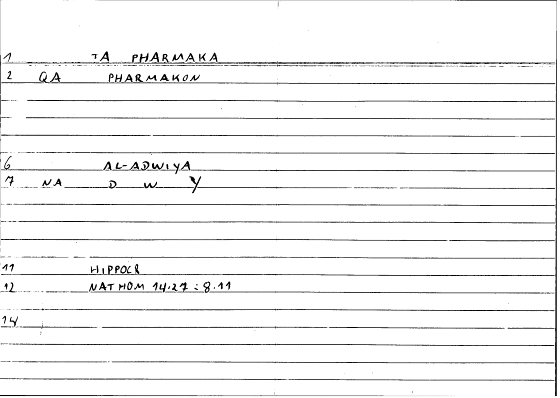 1 TA PHARMAKA
2 QA PHARMAKON
6 AL-ADWIYA
7 NA D W Y
11 HIPPOCR
12 NAT HOM 14.27 : 8.11
14